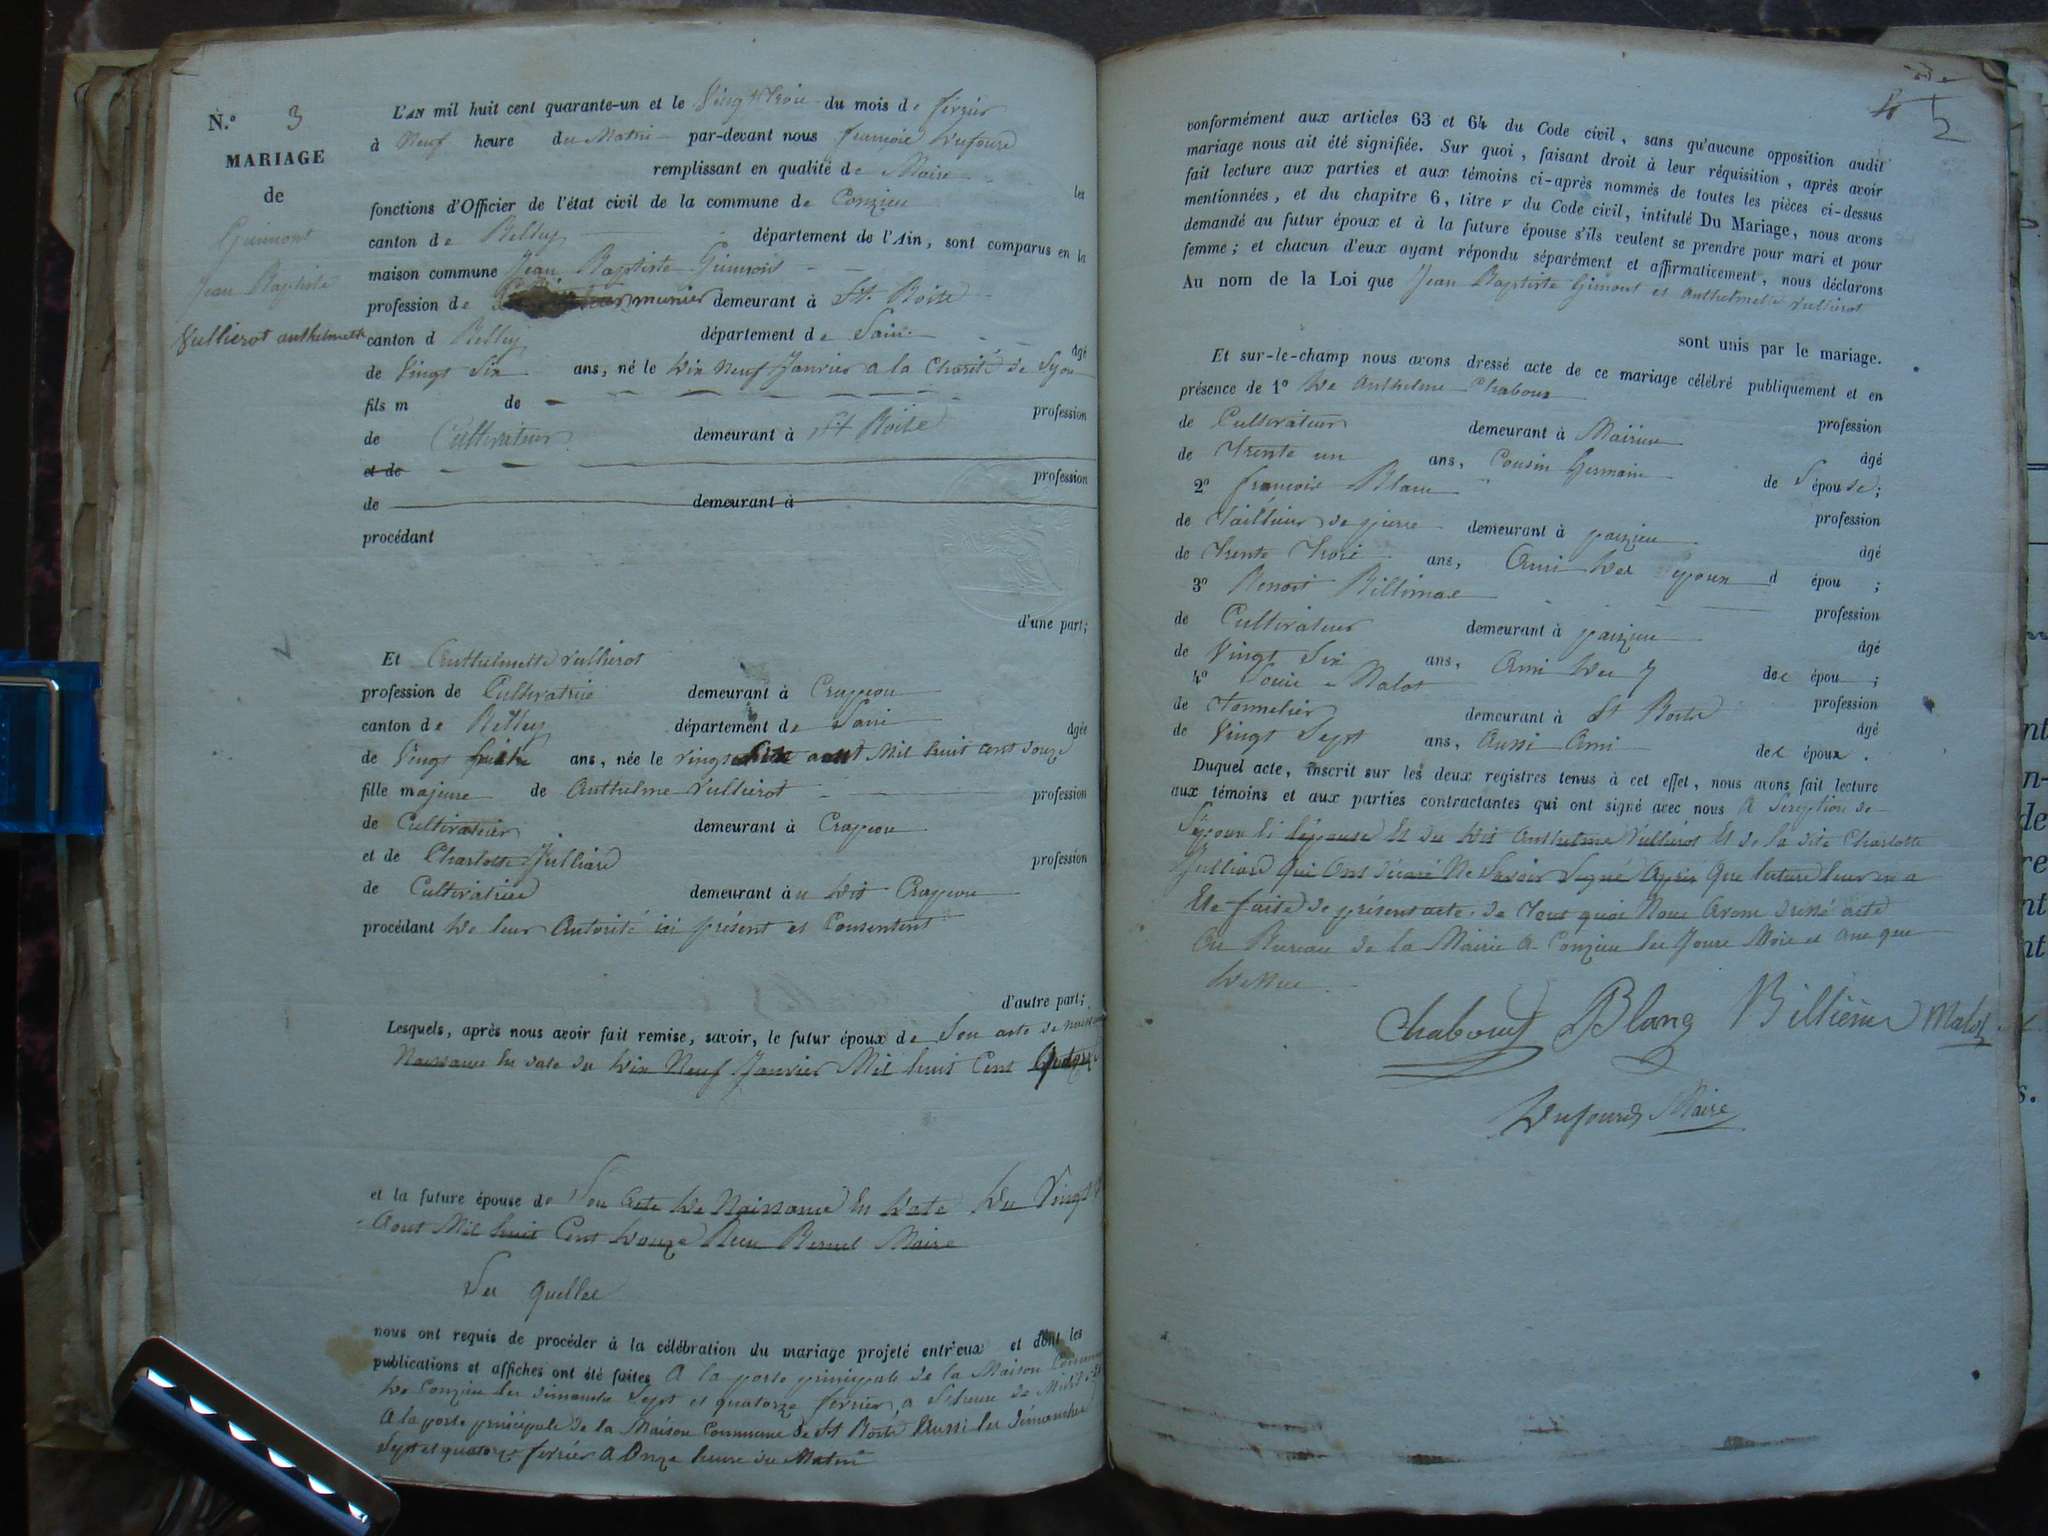 N.° 3
MARIAGE
de
Guimont
Jean Baptiste
Vullierot anthelmette
L'AN mil huit cent quarante-un et le Vingt trois du mois de fevrier
à Neuf heure du Matin par-devant nous francois Dufourd
remplissant en qualité de Maire les
fonctions d'Officier de l'état civil de la commune de Conzieu
canton de Belley département de l'Ain, sont comparus en la
maison commune Jean Baptiste Guimont
profession de munier demeurant à St. Boite
canton d Belley département de Lain âgé
de Vingt Six ans, né le Dix Neuf Janvier a la Charité de Lyon
fils m de profession
de Cultivateur demeurant à St Boite
et de profession
de demeurant à
procédant
d'une part;
Et Anthelmette Vullierot
profession de Cultivatrice demeurant à Crapeou
canton de Belley département de Lain âgée
de Vingt huit ans, née le vingt aout Mil huit cent douze
fille majeure de Anthelme Vullierot profession
de Cultivateur demeurant à Crapeou
et de Charlotte Julliard profession
de Cultivatrice demeurant àu dit Crapeou
procédant De leur Autorité ici présent et Consentent
d'autre part;
Lesquels, après nous avoir fait remise, savoir, le futur époux de Son acte de
Naissance En date du Dix Neuf Janvier Mil huit Cent Quatorze
et la future épouse de Son Acte De Naissance En Date Du Vingt
Aout Mil huit Cent Douze Maire
Les quelles
nous ont requis de procéder à la célébration du mariage projeté entr'eux et dont les
publications et affiches ont été faites A la porte principale de la Maison Commune
De Conzieu les dimanche Sept et quatorze fevrier a heure de Midi
A la porte principale de la Maison Commune de St Boite Aussi les dimanches
Sept et quatorze fevrier A Onze heure du Matin
5
2
conformément aux articles 63 et 64 du Code civil, sans qu'aucune opposition audit
mariage nous ait été signifiée. Sur quoi, faisant droit à leur réquisition, après avoir
fait lecture aux parties et aux témoins ci-après nommés de toutes les pièces ci-dessus
mentionnées, et du chapitre 6, titre v du Code civil, intitulé Du Mariage, nous avons
demandé au futur époux et à la future épouse s'ils veulent se prendre pour mari et pour
femme; et chacun d'eux ayant répondu séparément et affirmativement, nous déclarons
Au nom de la Loi que Jean Baptiste Gimont et Anthelmette Vullierot
sont unis par le mariage.
Et sur-le-champ nous avons dressé acte de ce mariage célébré publiquement et en
présence de 1° De Anthelme Chaboux profession
de Cultivateur demeurant à Mairieu âgé
de Trente un ans, Cousin Germain de L'épouse;
2° francois Blanc profession
de Tailleur de pierre demeurant à parzieu âgé
de Trente Trois ans, Ami Des Epoux d épou ;
3° Benoit Billimaz profession
de Cultivateur demeurant à parzieu âgé
de Vingt Six ans, Ami Des des épou ;
4° Louis Malot profession
de Tonnelier demeurant à St Boite âgé
de Vingt Sept ans, Aussi Ami des époux.
Duquel acte, inscrit sur les deux registres tenus à cet effet, nous avons fait lecture
aux témoins et aux parties contractantes qui ont signé avec nous A Lexeption de
L'epoux Et L'epouse Et du Dit Anthelme Vullierot Et de la dite Charlotte
Julliard Qui Ont Déclaré Ne Savoir Signé Après Que lecture leur en a
Ete faite de présent acte. de Tout quoi Nous Avons dressé acte
Au Bureau de la Mairie A Conzieu les Jours Mois et ans que
Dessus
Chaboux Blanc Billième Malot
Dufourd Maire